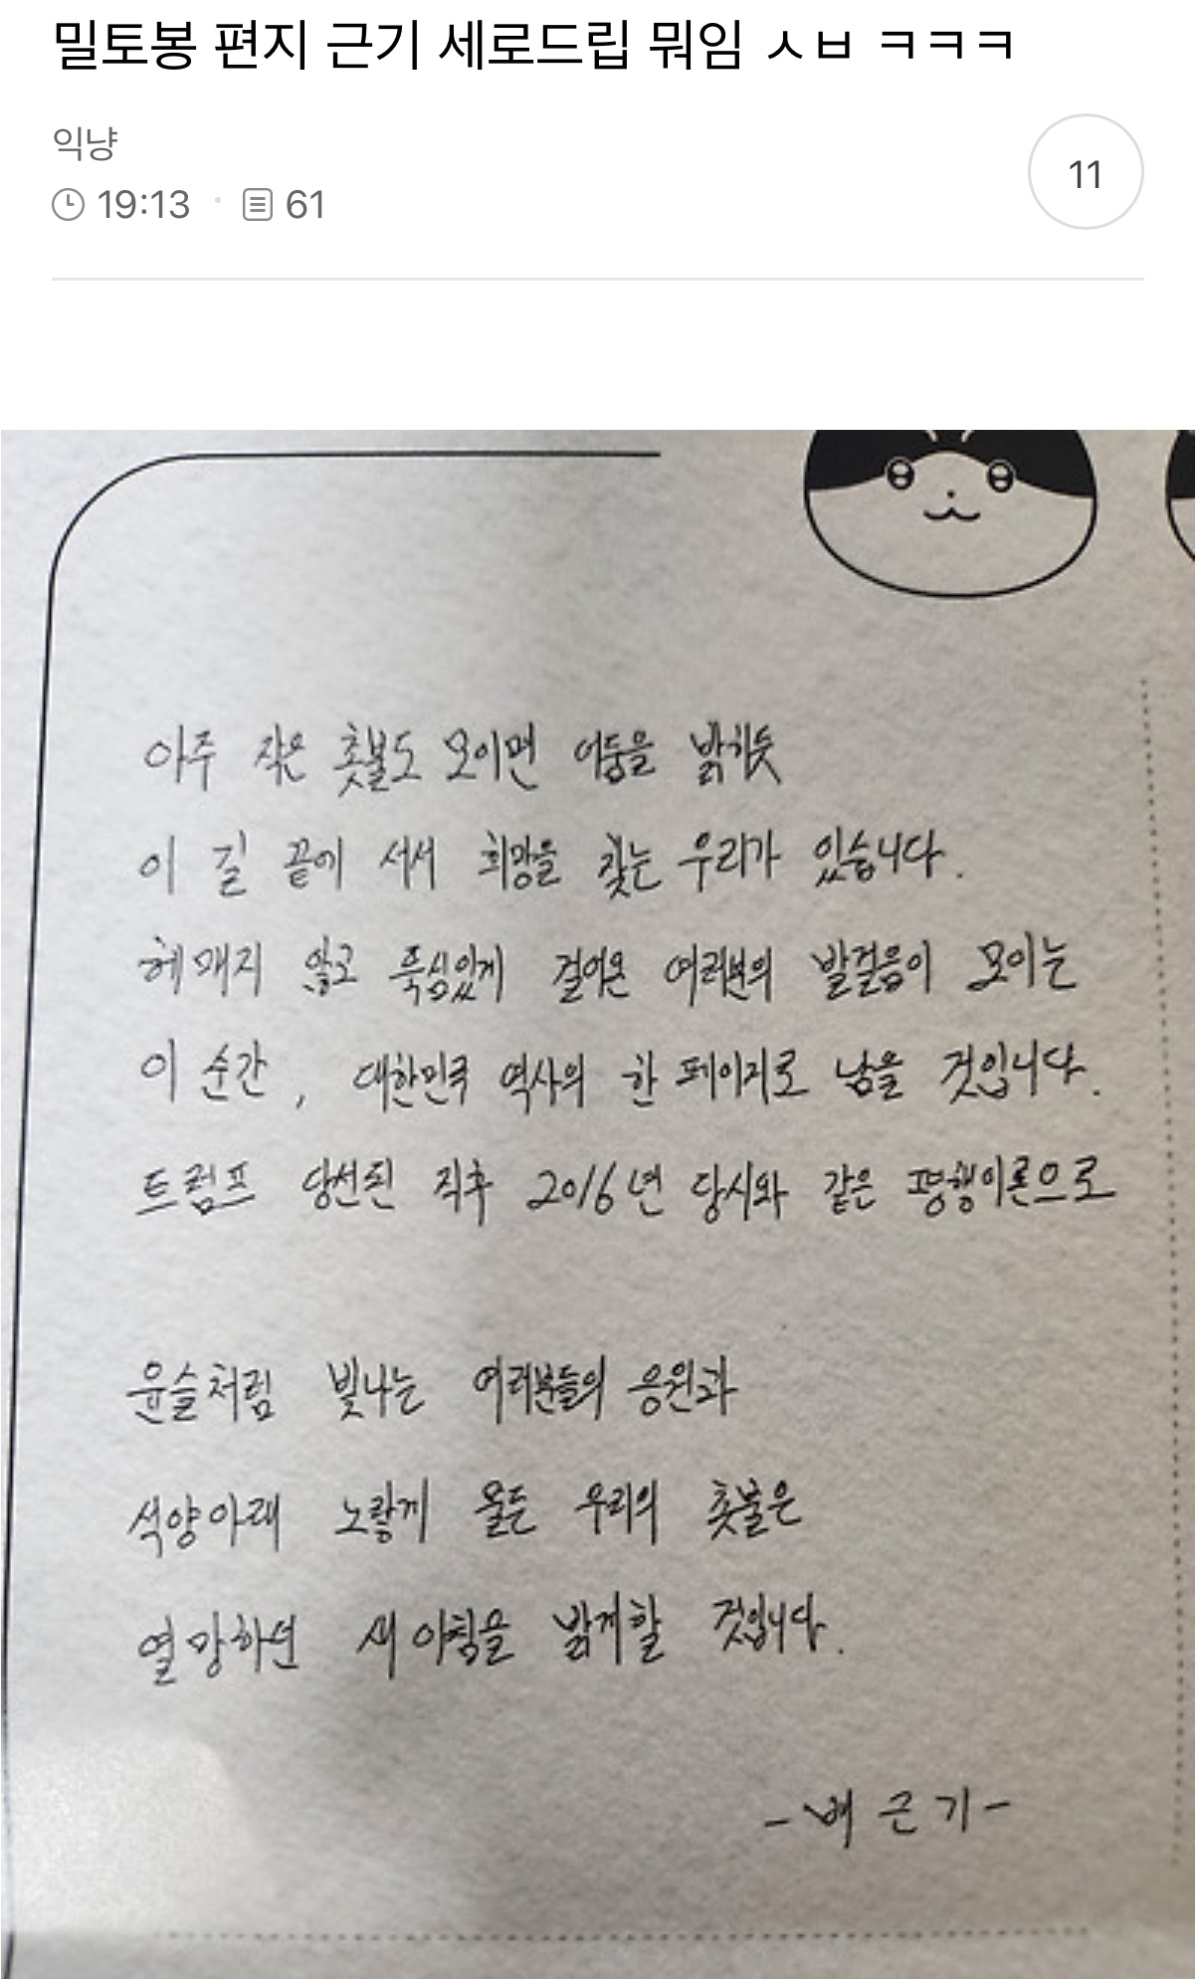 밀토봉 편지 근기 세로드립 뭐임 ㅅㅂ ㅋㅋㅋ
익냥
19:13 · 61
11
아주 작은 촛불도 모이면 어둠을 밝히듯
이 길 끝에 서서 희망을 찾는 우리가 있습니다.
헤매지 않고 뚝심있게 걸어온 여러분의 발걸음이 모이는
이 순간, 대한민국 역사의 한 페이지로 남을 것입니다.
트럼프 당선된 직후 2016년 당시와 같은 평행이론으로
윤슬처럼 빛나는 여러분들의 응원과
석양아래 노랗게 물든 우리의 촛불은
열망하던 새 아침을 밝게할 것입니다.
-배근기-